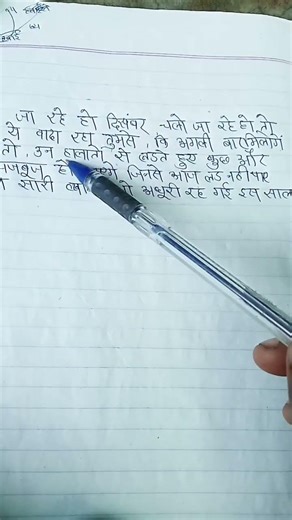 जा रहे हो दिसंबर चले जा रहे हो, तो
ये वादा रहा तुमसे, कि अगली बार मिलोगे
तो, उन हालातों से लडते हुए कुछ और
जिनसे आप लड नहीं पाए
सारी अधूरी रह गई इस साल